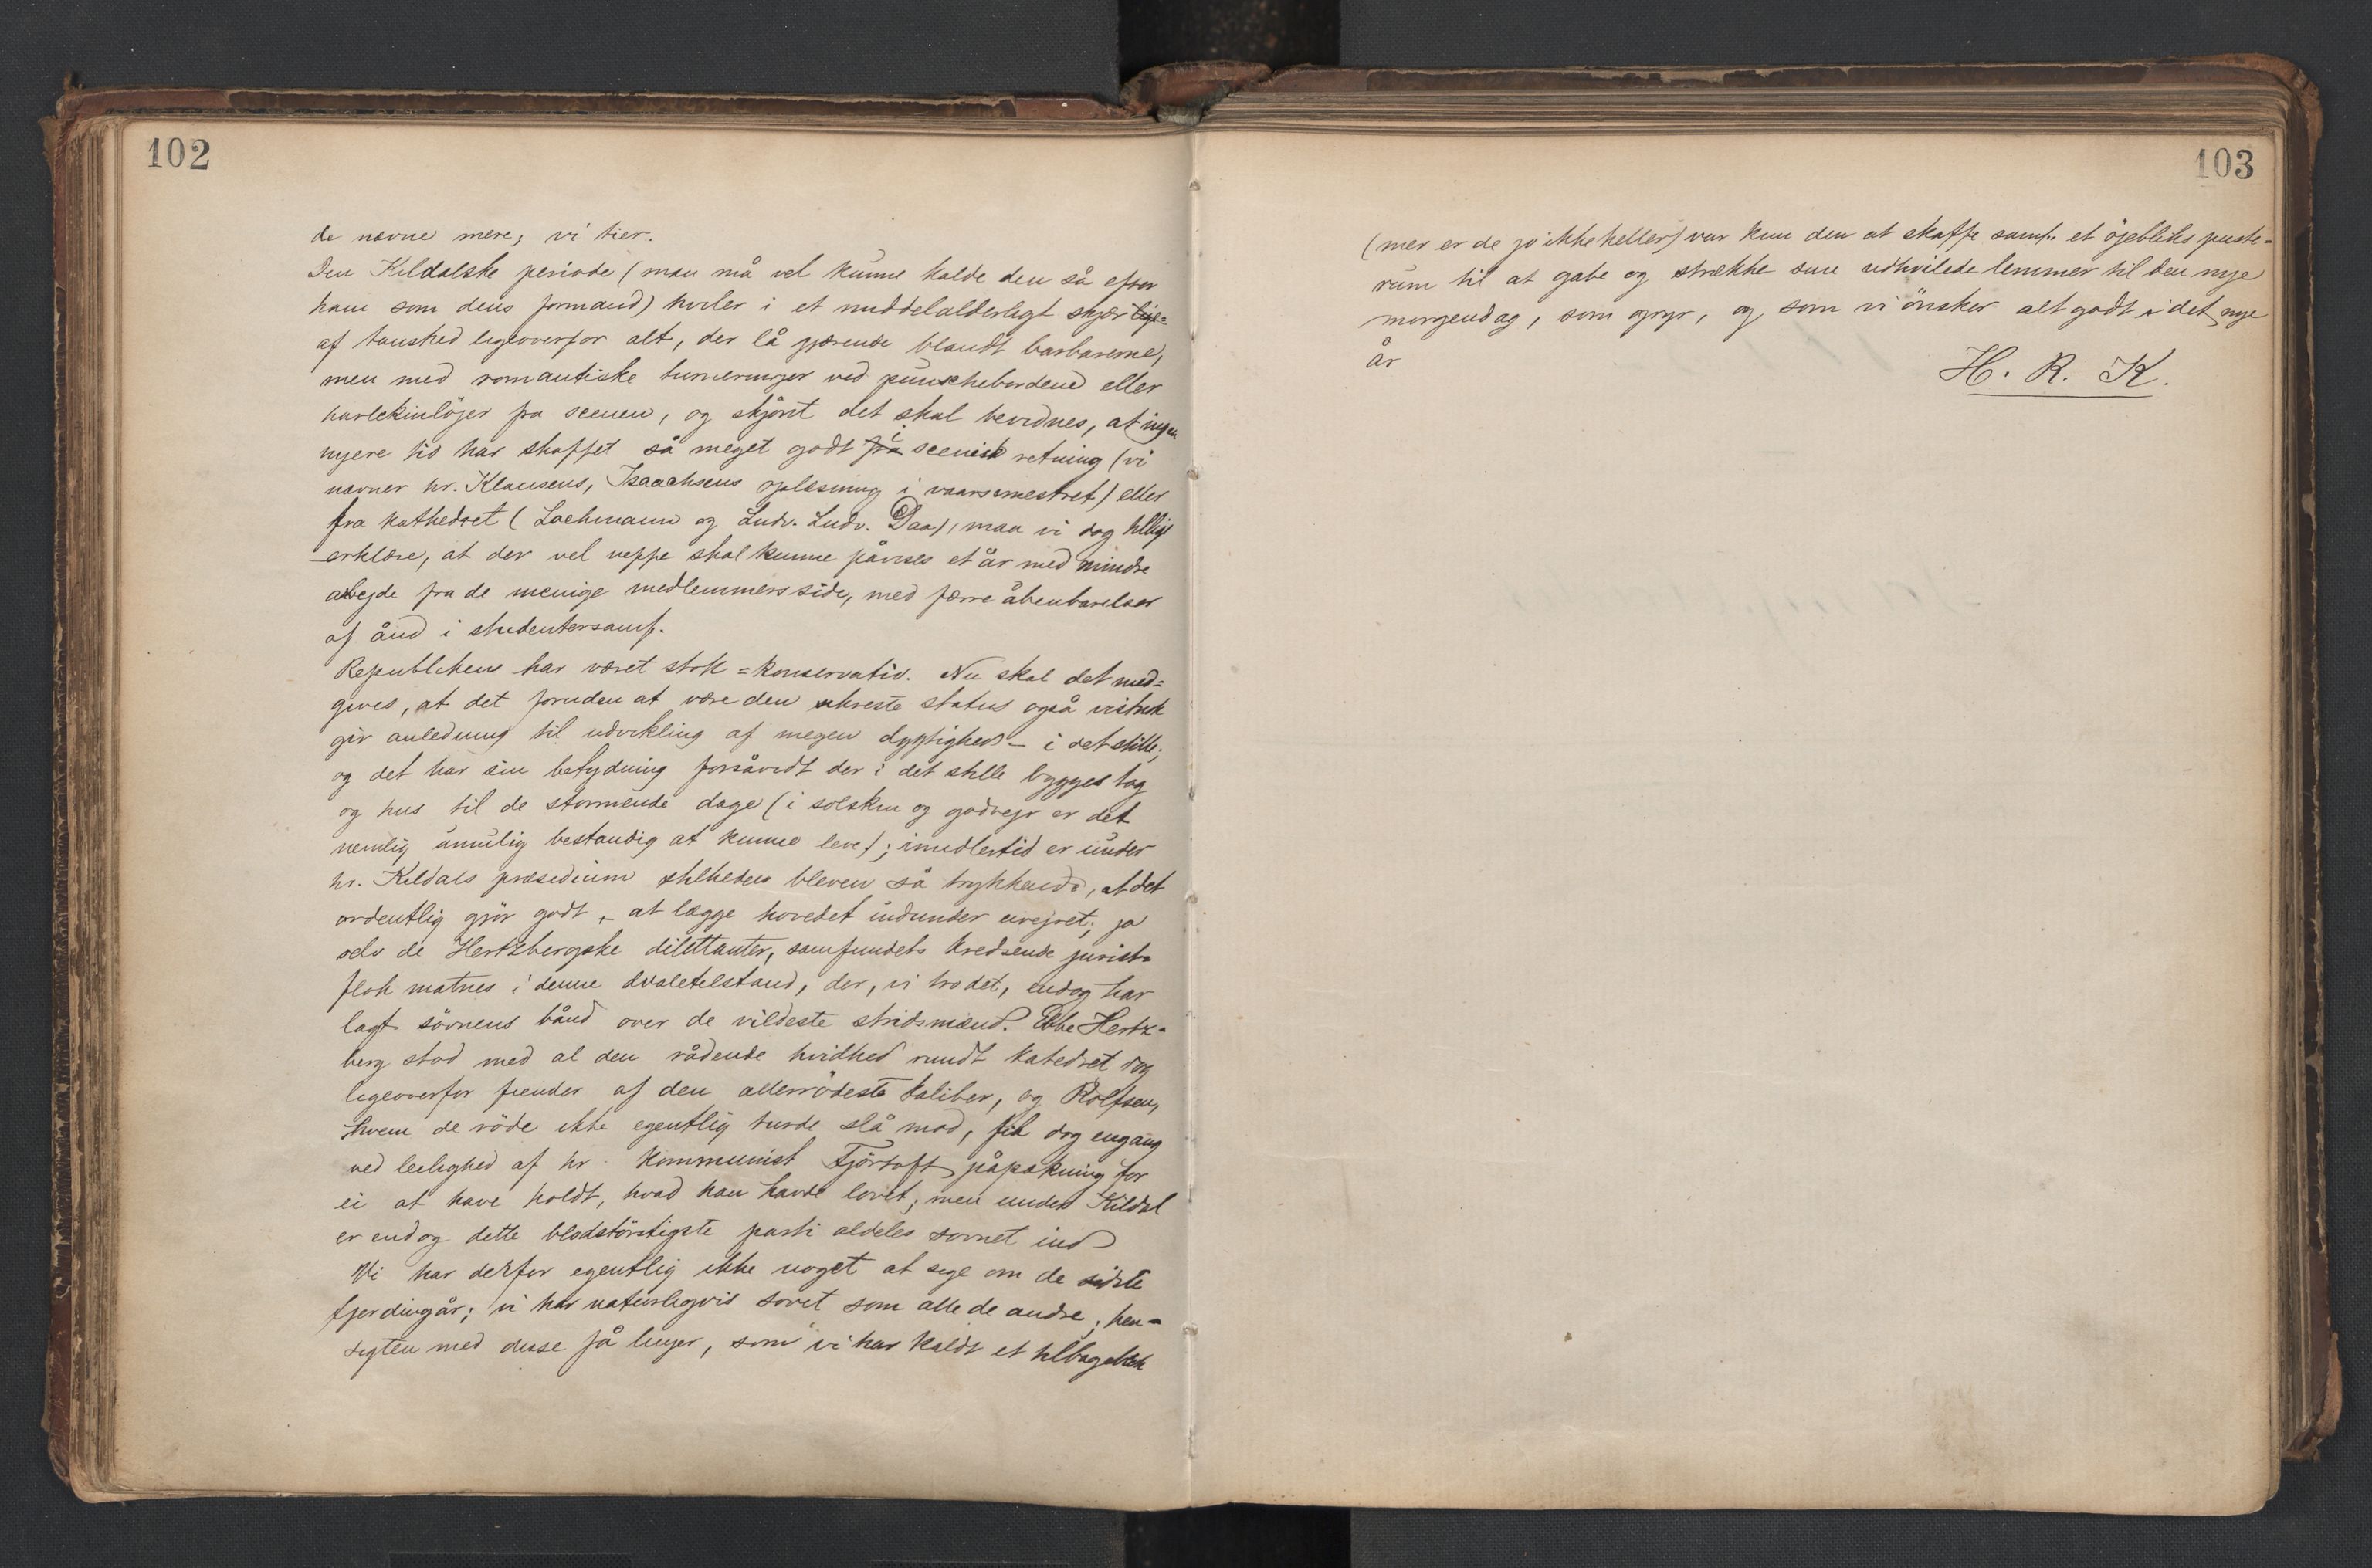 102
de nævne mere; vi tier.
Den Kildalske periode (man må vel kunne kalde den så efter
ham som dens formand) hviler i et middelalderligt skjær
af taushed ligeoverfor alt, der lå gjærende blandt barbarerne,
men med romantiske turneringer ved punschebordene eller
harlekinlöjer fra scenen, og skjönt det skal bevidnes, at ingen
nyere tid har skaffet så meget godt i scenisk retning (vi
nævner hr. Klausens, Isaachsens oplæsning i vaarsemestret) eller
fra kathedret (Lochmann og Ludv. Ludv. Daa), maa vi dog tillige
erklære, at der vel neppe skal kunne påvises et år med mindre
arbejde fra de menige medlemmers side, med færre åbenbarelser
af ånd i studentersamf.
Republiken har været stok=konservativ. Nu skal det med=
gives, at det foruden at være den sikreste status også vistnok
gir anledning til udvikling af megen dygtighed – i det stille;
og det har sin betydning forsåvidt der i det stille bygges tag
og hus til de stormende dage (i solskin og godvejr er det
nemlig umulig bestandig at kunne leve); imidlertid er under
hr. Kildals præsidium stilheden bleven så trykkende, at det
ordentlig gjör godt at lægge hovedet indunder uvejret; ja
selv de Hertzbergske dilettanter, samfundets kredsende jurist=
flok matnes i denne dvaletilstand, der, vi tro det, endog har
lagt sövnens bånd over de vildeste stridsmænd. Ebbe Hertz=
berg stod med al den rådende hvidhed rundt katedret dog
ligeoverfor fiender af den allerrödeste kaliber, og Rolfsen,
hvem de röde ikke egentlig turde slå mod, fik dog engang
ved leilighed af hr. kommunist Fjörtoft påpakning for
ei at have holdt, hvad han havde lovet; men under Kildal
er endog dette blodstörstigste parti aldeles sovnet ind
Vi har derfor egentlig ikke noget at sige om de sidste
fjerdingår; vi har naturligvis sovet som alle de andre; hen=
sigten med disse få linjer, som vi har kaldt et tilbageblik
103
(mer er de jo ikke heller) var kun den at skaffe samf. et öjebliks puste=
rum til at gabe og strække sine udhvilede lemmer til den nye
morgendag, som gryr, og som vi önsker alt godt i det nye
år
H. R. K.